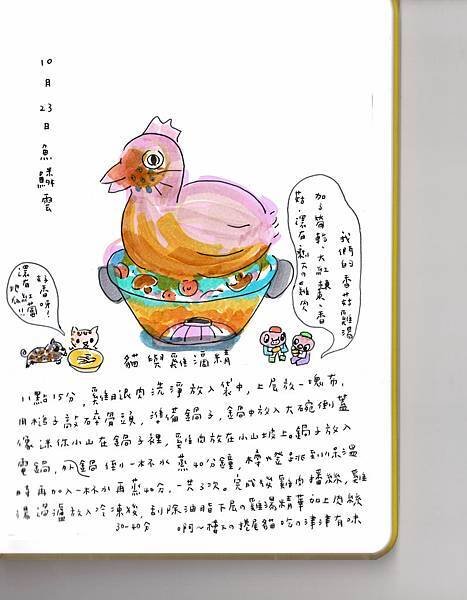 10月23日魚鱗雲
我們的香菇雞湯
加了筍乾、大紅棗、香
菇，還有剩下的雞肉
好香呀！
還有紅蘿
地瓜!!
貓與雞滴精
11點15分，雞腿肉洗淨放入袋中，上層放一塊布，
用槌子敲碎骨頭，準備鍋子，鍋中放入大碗倒蓋
像迷你小山在鍋子裡，雞肉放在小山坡上。鍋子放入
電鍋，外鍋倒一杯水蒸40分鐘，轉登跳到保溫
時再加入一杯水再蒸40分，一共3次。完成後雞肉撥絲，雞
湯過濾放入冷凍後，刮除油脂下層の雞湯精華加上肉絲
30-40分
啊～橘子の捲尾貓吃の津津有味